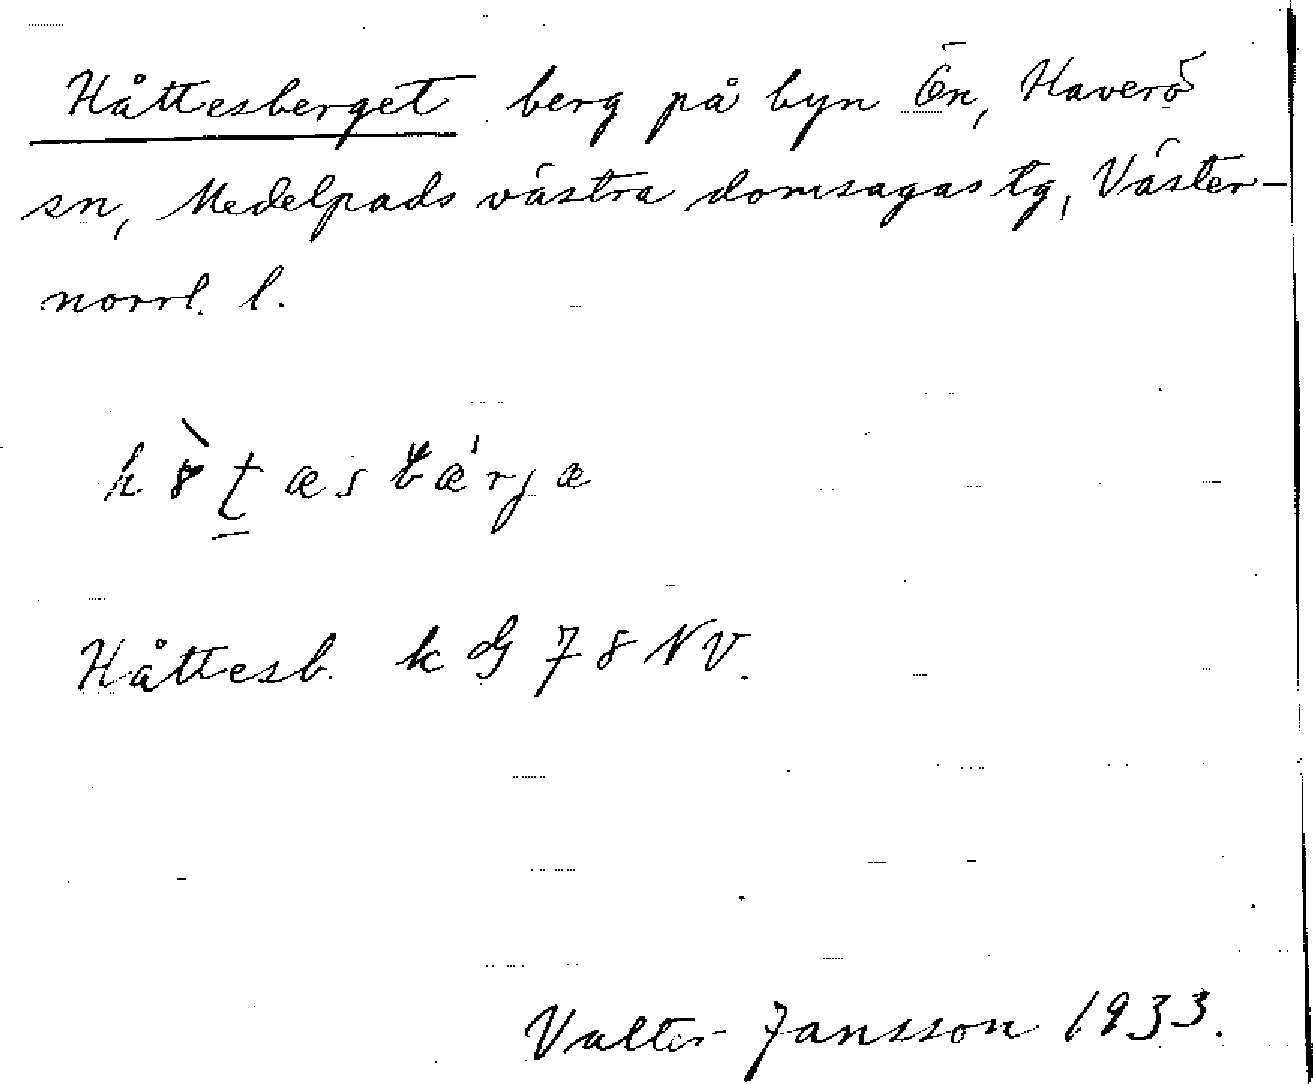 Håttesberget berg på byn Ön, Haverö
sn, Medelpads västra domsagas tg, Väster-
norrl. l.
Håttesb. k G 78 NV.
Valter Jansson 1933.